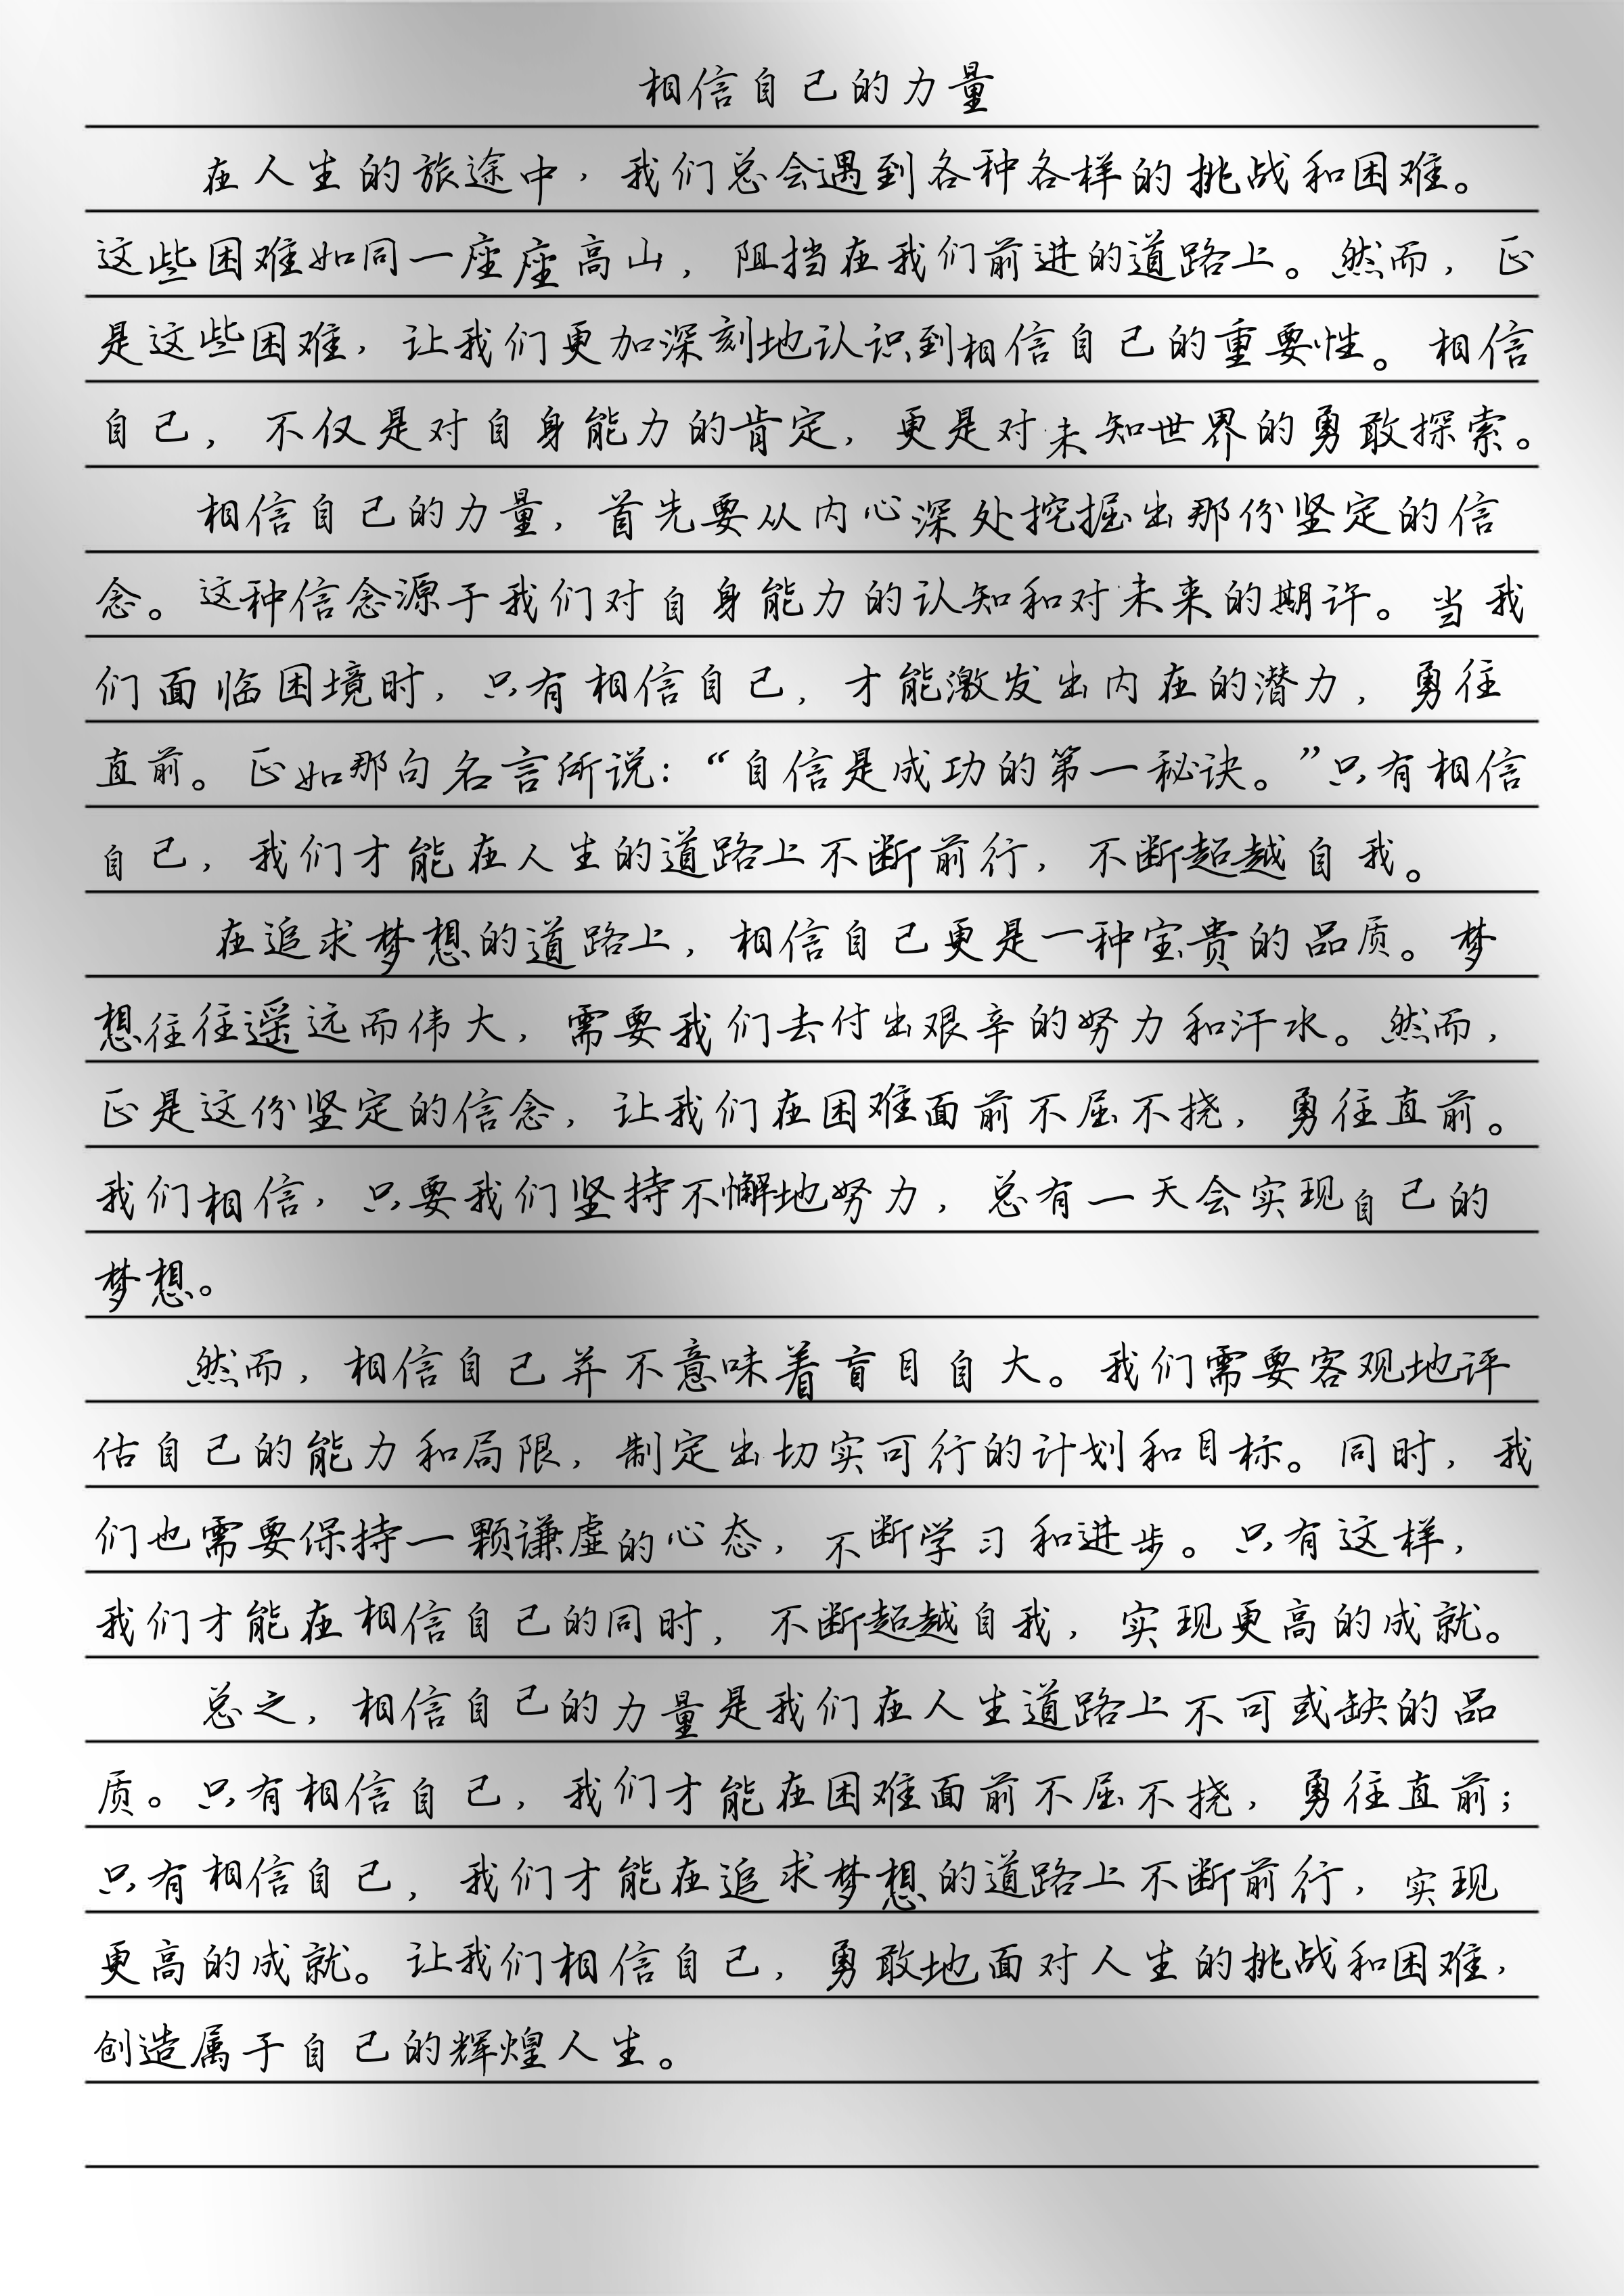 相信自己的力量
在人生的旅途中，我们总会遇到各种各样的挑战和困难。
这些困难如同一座座高山，阻挡在我们前进的道路上。然而，正
是这些困难，让我们更加深刻地认识到相信自己的重要性。相信
自己，不仅是对自身能力的肯定，更是对未知世界的勇敢探索。
相信自己的力量，首先要从内心深处挖掘出那份坚定的信
念。这种信念源于我们对自身能力的认知和对未来的期许。当我
们面临困境时，只有相信自己，才能激发出内在的潜力，勇往
直前。正如那句名言所说：“自信是成功的第一秘诀。”只有相信
自己，我们才能在人生的道路上不断前行，不断超越自我。
在追求梦想的道路上，相信自己更是一种宝贵的品质。梦
想往往遥远而伟大，需要我们去付出艰辛的努力和汗水。然而，
正是这份坚定的信念，让我们在困难面前不屈不挠，勇往直前。
我们相信，只要我们坚持不懈地努力，总有一天会实现自己的
梦想。
然而，相信自己并不意味着盲目自大。我们需要客观地评
估自己的能力和局限，制定出切实可行的计划和目标。同时，我
们也需要保持一颗谦虚的心态，不断学习和进步。只有这样，
我们才能在相信自己的同时，不断超越自我，实现更高的成就。
总之，相信自己的力量是我们在人生道路上不可或缺的品
质。只有相信自己，我们才能在困难面前不屈不挠，勇往直前；
只有相信自己，我们才能在追求梦想的道路上不断前行，实现
更高的成就。让我们相信自己，勇敢地面对人生的挑战和困难，
创造属于自己的辉煌人生。